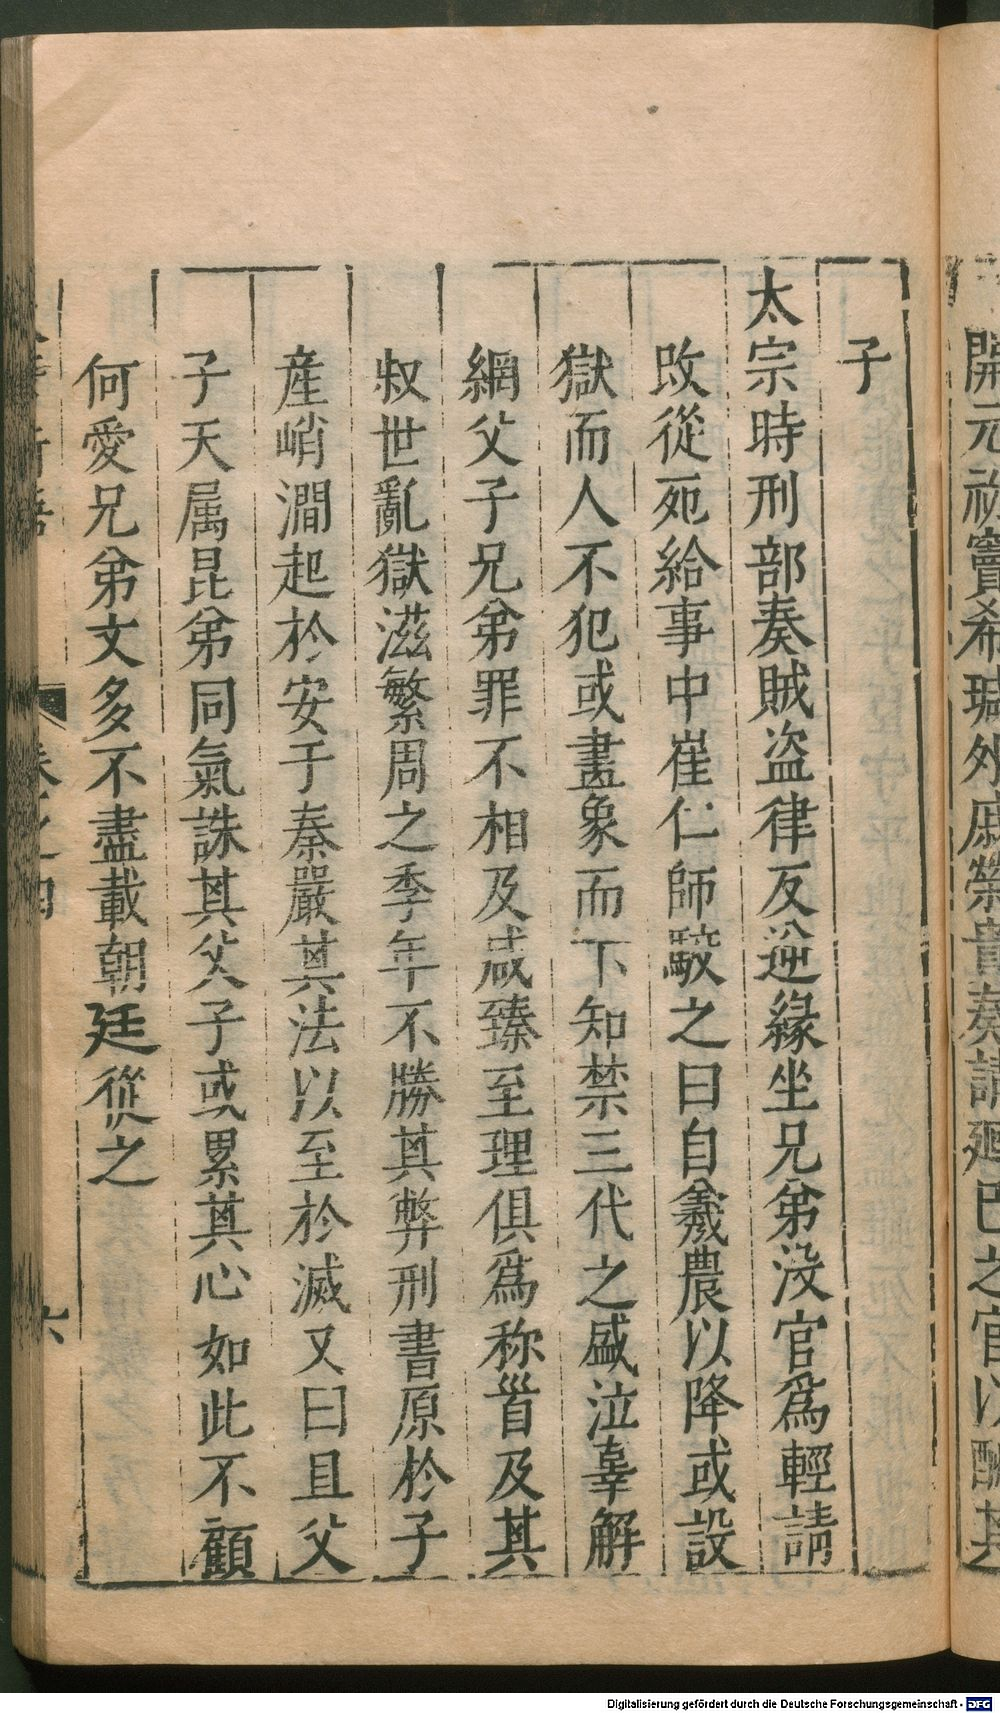 子
太宗時刑部奏賊盜律反逆緣坐兄弟沒官為輕請
改從死給事中崔仁師駁之曰自羲農以降或設
獄而人不犯或畫象而下知禁三代之盛泣辜解
網父子兄弟罪不相及咸臻至理俱為称首及其
叔世亂獄滋繁周之季年不勝其弊刑書原於子
產峭澗起於安于秦嚴其法以至於滅又曰且父
子天属昆弟同氣誅其父子或累其心如此不顧
何愛兄弟文多不盡載朝廷從之
六
開元初竇希瑊外戚榮貴奏請廻已之官以酬其
Digitalisierung gefördert durch die Deutsche Forschungsgemeinschaft - DFG